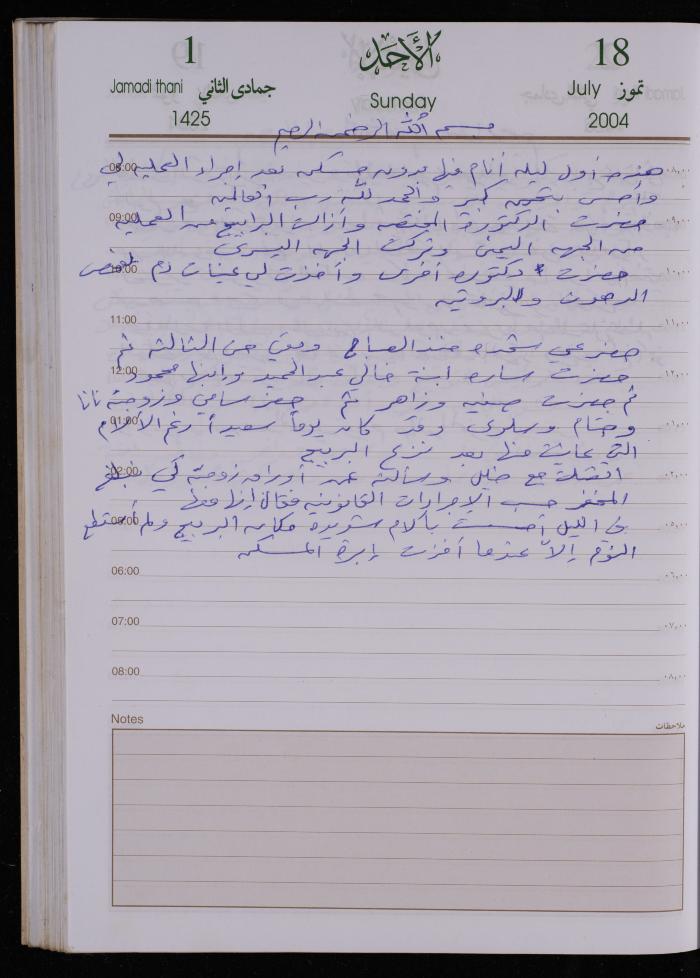 1
الأحد
18
Jamadi thani جمادى الثاني
July تموز
Sunday
1425
2004
بسم الله الرحمن الرحيم
08:00 هذه أول ليلة أنام فيها بدون مسكن بعد إجراء العملية لي ٠٨,٠٠
وأحس بتحسن كبير والحمد لله رب العالمين
09:00 حضرت الدكتورة المختصه وأزالت البرابيج من العملية ٠٩,٠٠
من الجهه اليمنى وتركت الجهه اليسرى
10:00 حضرت دكتوره أخرى وأخذت لي عينات دم لفحص ١٠,٠٠
الدهون والبروتين
11:00 ١١,٠٠
حضر عمي شحده منذ الصباح وبقي حتى الثالثة ثم
12:00 حضرت ساره ابنة خالي عبد الحميد وابنها محمود ١٢,٠٠
ثم حضرت صفيه وزاهر ثم حضر سامي وزوجته نانا
01:00 وختام وسلوى وقد كان يوماً سعيداً رغم الآلام ٠١,٠٠
التي عانيت منها بعد نزع البربيج
02:00 اتصلت مع خليل وسألته عن أوراق زوجته لكي ٠٢,٠٠
المحضر حسب الإجراءات القانونيه فقال أنها معها
03:00 في الليل أحسست بآلام شديده مكان البربيج ولم أستطع ٠٥,٠٠
النوم إلاّ عندما أخذت إبرة المسكن
06:00 ٠٦,٠٠
07:00 ٠٧,٠٠
08:00 ٠٨,٠٠
Notes ملاحظات